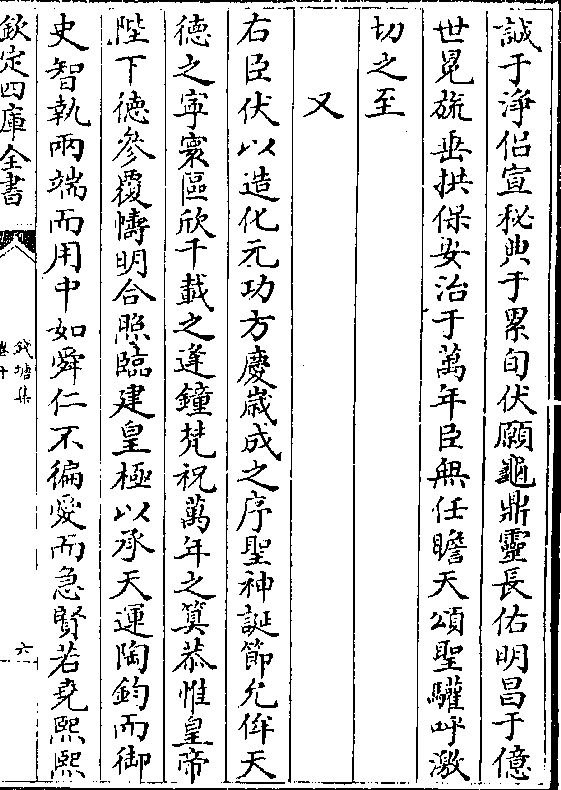 誠于淨侶宣秘典于累旬伏願龜鼎靈長佑明昌于億
世冕旒垂拱保安治于萬年臣無任瞻天頌聖驩呼激
切之至
又
右臣伏以造化元功方慶歳成之序聖神誕節允侔天
德之寧寰區欣千載之逢鐘梵祝萬年之筭恭惟皇帝
陛下德參覆幬明合照臨建皇極以承天運陶鈞而御
史智執兩端而用中如舜仁不徧愛而急賢若堯熙熙
欽定四庫全書
錢塘集
六